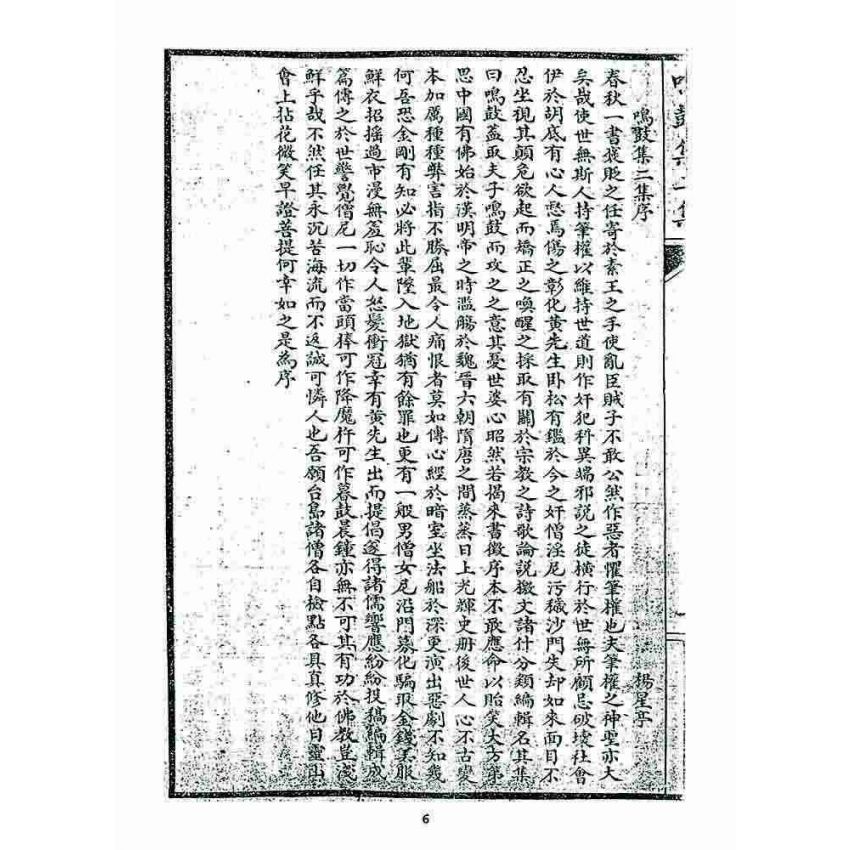 鳴鼓集二集
鳴鼓集二集序
楊星亭
春秋一書褒貶之任寄於素王之手使亂臣賊子不敢公然作惡者懼筆權也夫筆權之神聖亦大
矣哉使世無斯人持筆權以維持世道則作奸犯科異端邪說之徒橫行於世無所顧忌破壞社會
伊於胡底有心人慼焉傷之彰化黃先生臥松有鑑於今之奸僧淫尼污穢沙門失却如來面目不
忍坐視其顛危欲起而矯正之喚醒之採取有關於宗教之詩歌論說檄文諸什分類編輯名其集
曰鳴鼓蓋取夫子鳴鼓而攻之之意其憂世婆心昭然若揭來書徵序本不敢應命以貽笑大方第
思中國有佛始於漢明帝之時濫觴於魏晉六朝隋唐之間蒸蒸日上光輝史册後世人心不古變
本加厲種種弊害指不勝屈最令人痛恨者莫如傳心經於暗室坐法船於深更演出惡劇不知幾
何吾恐金剛有知必將此輩墮入地獄猶有餘罪也更有一般男僧女尼沿門募化騙取金錢美服
鮮衣招搖過市漫無羞恥令人怒髮衝冠幸有黃先生出而提倡遂得諸儒響應紛紛投稿編輯成
篇傳之於世警覺僧尼一切作當頭捧可作降魔杵可作暮鼓晨鐘亦無不可其有功於佛教豈淺
鮮乎哉不然任其永沉苦海流而不返誠可憐人也吾願台島諸僧各自檢點各具真修他日靈山
會上拈花微笑早證菩提何幸如之是為序
6